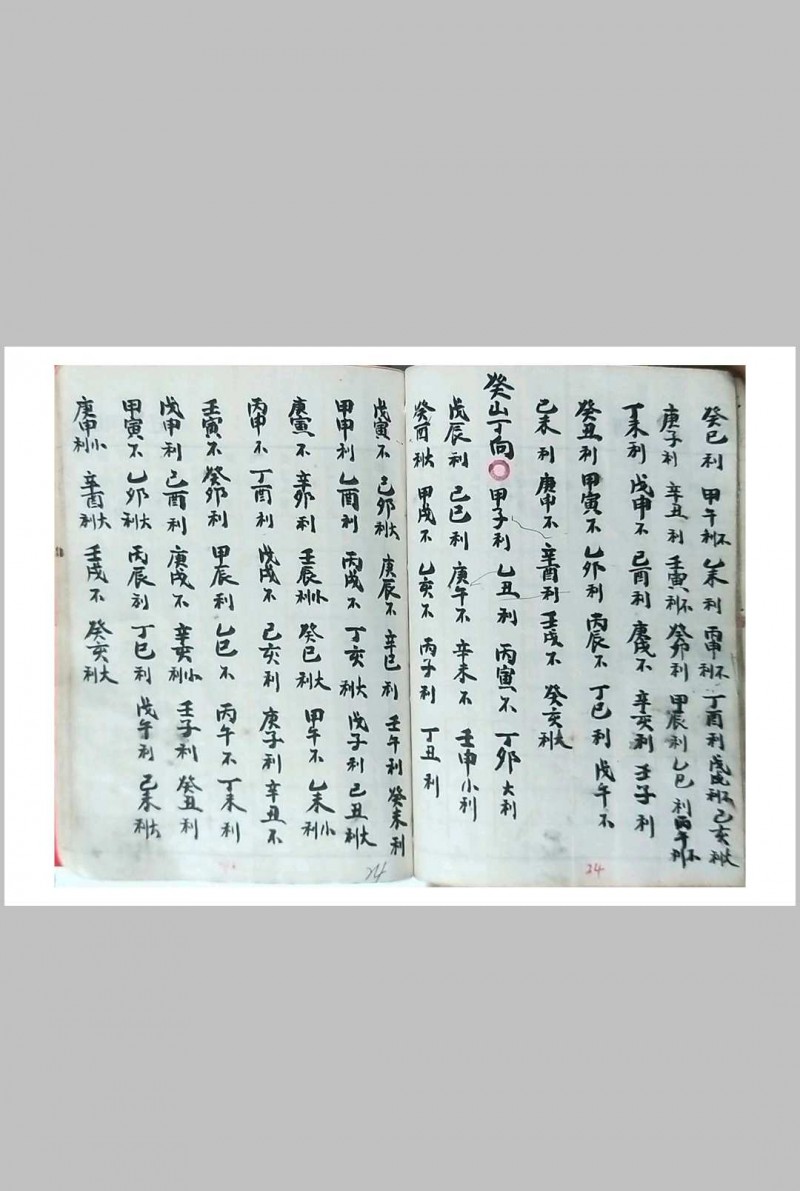 癸巳利 甲午不利 乙未利 丙申不利 丁酉利 戊戌不利 己亥大利
庚子利 辛丑利 壬寅不利 癸卯利 甲辰利 乙巳利 丙午不利
丁未利 戊申不 己酉利 庚戌不 辛亥利 壬子利
癸丑利 甲寅不 乙卯利 丙辰不 丁巳利 戊午不
己未利 庚申不 辛酉利 壬戌不 癸亥大利
癸山丁向 甲子利 乙丑利 丙寅不 丁卯大利
戊辰利 己巳利 庚午不 辛未不 壬申小利
癸酉大利 甲戌不 乙亥不 丙子利 丁丑利
24
戊寅不 己卯大利 庚辰不 辛巳利 壬午利 癸未利
甲申利 乙酉利 丙戌不 丁亥大利 戊子利 己丑大利
庚寅不 辛卯利 壬辰小利 癸巳大利 甲午不 乙未小利
丙申不 丁酉利 戊戌不 己亥利 庚子利 辛丑不
壬寅不 癸卯利 甲辰利 乙巳不 丙午不 丁未利
戊申利 己酉利 庚戌不 辛亥小利 壬子利 癸丑利
甲寅不 乙卯大利 丙辰利 丁巳利 戊午利 己未大利
庚申小利 辛酉大利 壬戌不 癸亥大利
24